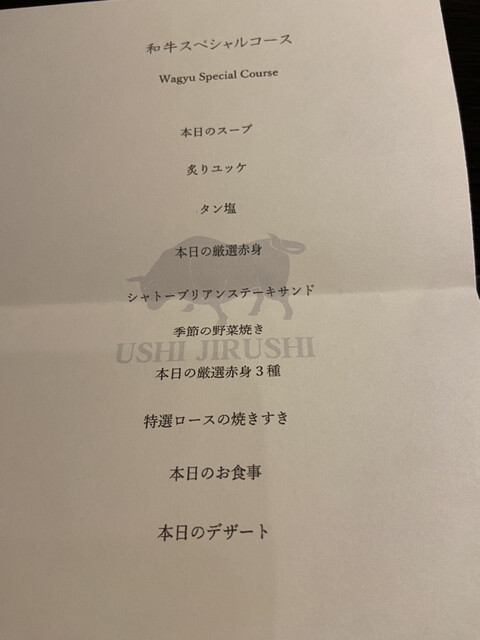 和牛スペシャルコース
Wagyu Special Course
本日のスープ
炙りユッケ
タン塩
本日の厳選赤身
シャトーブリアンステーキサンド
季節の野菜焼き
USHI JIRUSHI
本日の厳選赤身３種
特選ロースの焼きすき
本日のお食事
本日のデザート